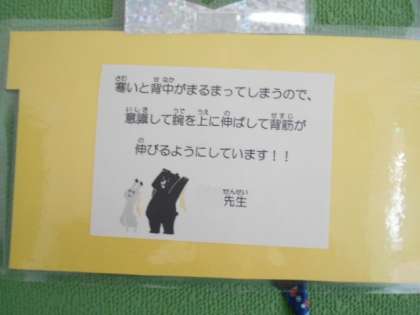 寒いと背中がまるまってしまうので、
意識して腕を上に伸ばして背筋が
伸びるようにしています！！
先生